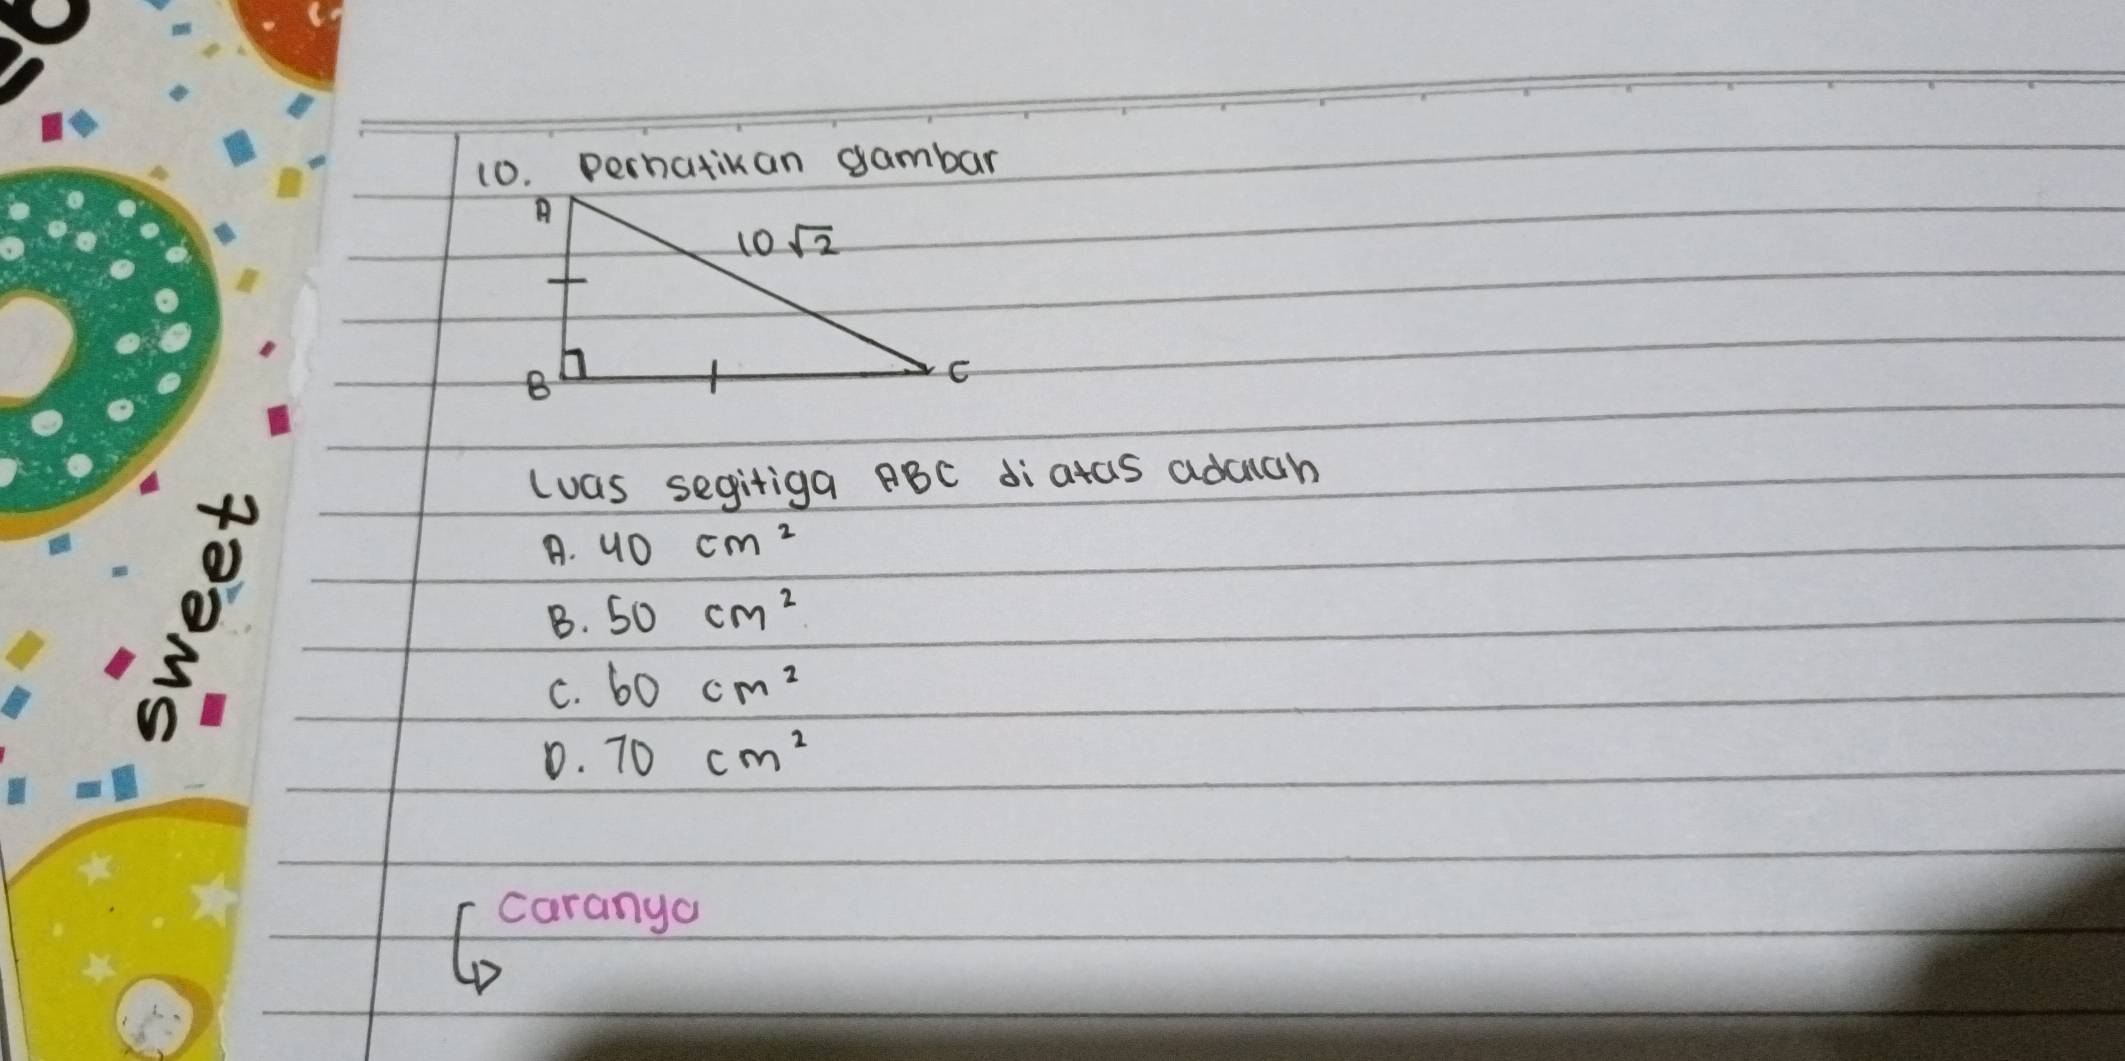 sweet
10. Perhatikan gambar
A
10√2
B
C
Luas segitiga ABC di atas adalah
A. 40 cm²
B. 50 cm²
C. 60 cm²
D. 70 cm²
caranya